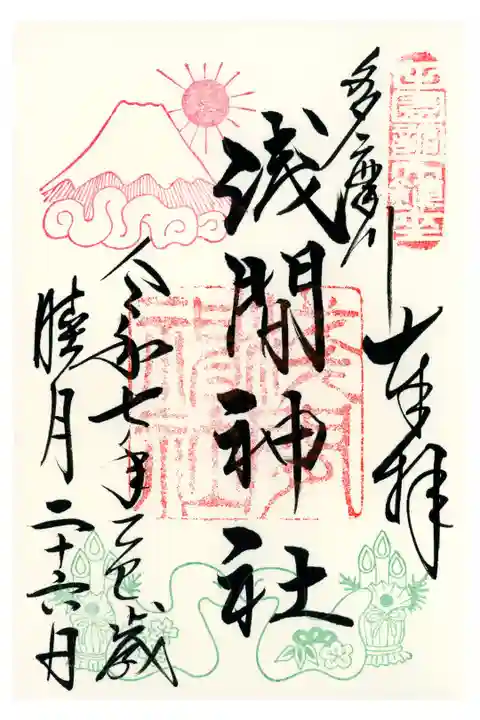 多摩川
奉拝
浅間神社
令和七年乙巳歳
睦月二十六日